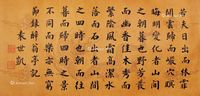 若夫日出而林霏
開雲歸而巖穴暝
晦明變化者山間
之朝暮也野芳發
而幽香佳木秀
而繁陰風霜高潔水
落而石出者山間
之四時也朝而往
暮而歸四時之景
不同而樂亦無窮
節錄醉翁亭記
袁世凱